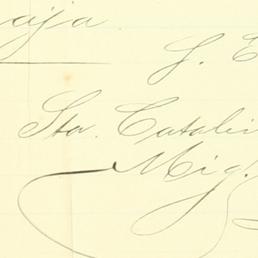 aja
S. E
Sta. Catali
Mig.